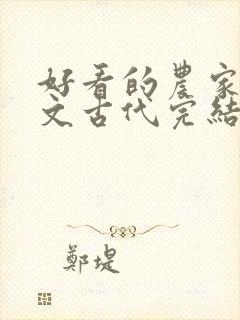 好看的農家
文古代完結
鄭堤